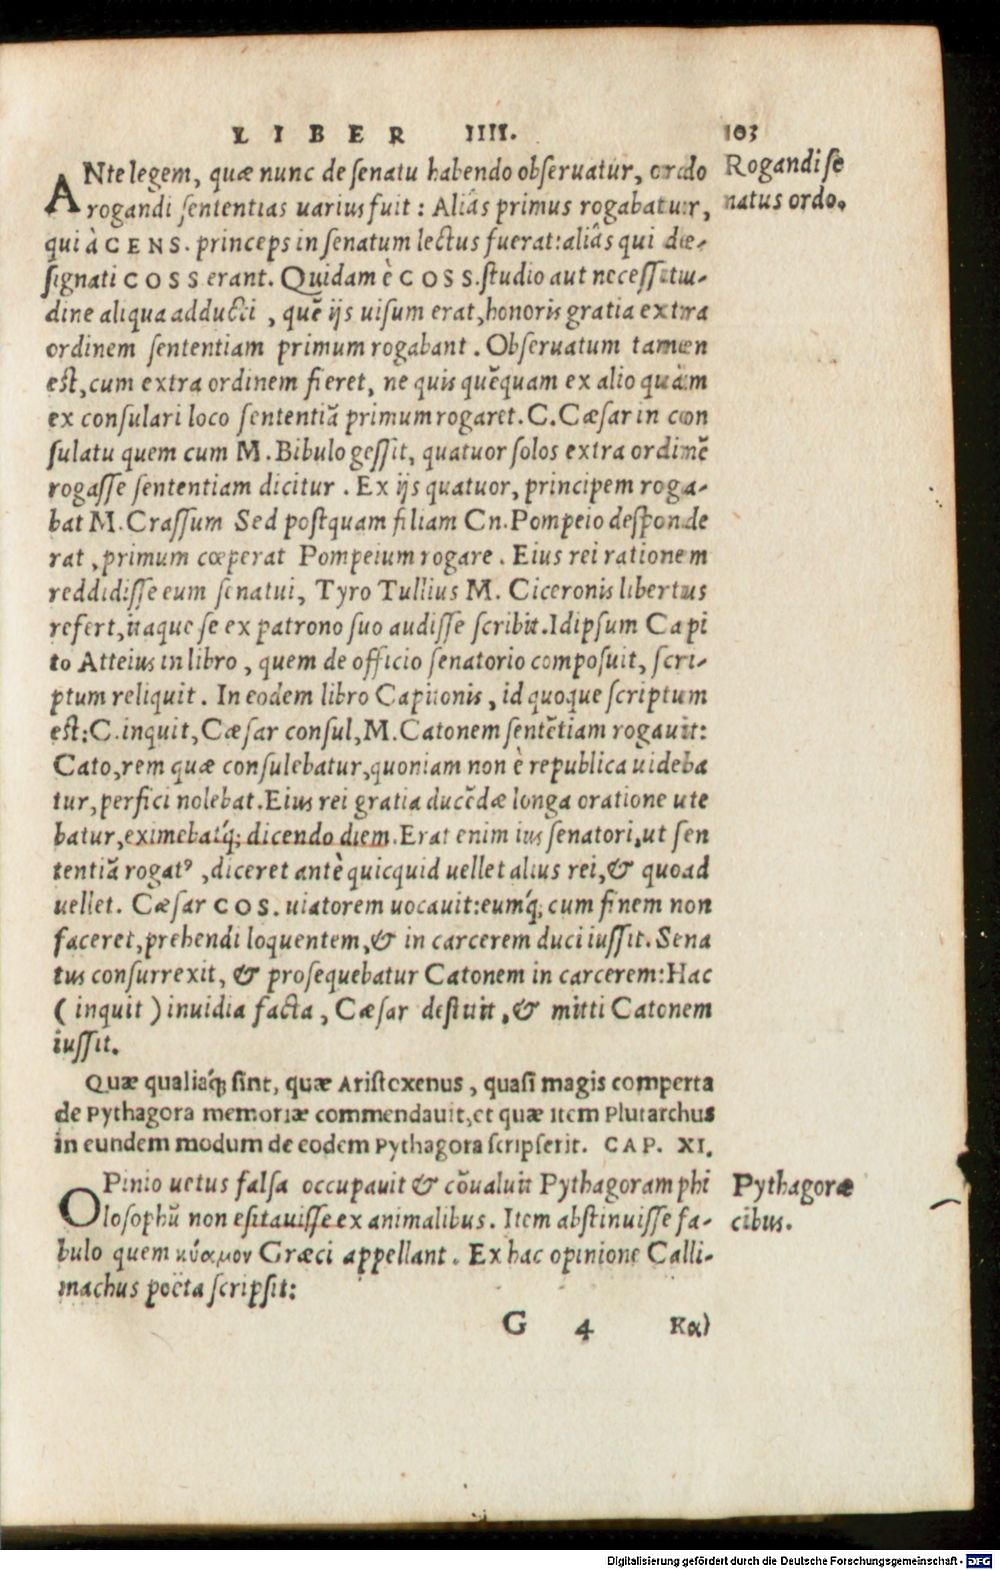 LIBER IIII. 103
ANte legem, quæ nunc de senatu habendo obseruatur, ordo
rogandi sententias uarius fuit: Aliâs primus rogabatur,
qui à CENS. princeps in senatum lectus fuerat: aliâs qui de-
signati COSS erant. Quidam è COSS. studio aut necessitu-
dine aliqua adducti, quẽ ijs uisum erat, honoris gratia extra
ordinem sententiam primum rogabant. Obseruatum tamen
est, cum extra ordinem fieret, ne quis quẽquam ex alio quàm
ex consulari loco sententiã primum rogaret. C. Cæsar in con
sulatu quem cum M. Bibulo gessit, quatuor solos extra ordinẽ
rogasse sententiam dicitur. Ex ijs quatuor, principem roga-
bat M. Crassum Sed postquam filiam Cn. Pompeio desponde
rat, primum cœperat Pompeium rogare. Eius rei rationem
reddidisse eum senatui, Tyro Tullius M. Ciceronis libertus
refert, itaque se ex patrono suo audisse scribit. Idipsum Capi
to Atteius in libro, quem de officio senatorio composuit, scri-
ptum reliquit. In eodem libro Capitonis, id quoque scriptum
est: C. inquit, Cæsar consul, M. Catonem sentẽtiam rogauit:
Cato, rem quæ consulebatur, quoniam non è republica uideba
tur, perfici nolebat. Eius rei gratia ducẽdæ longa oratione ute
batur, eximebatq́; dicendo diem. Erat enim ius senatori, ut sen
tentiã rogatꝰ, diceret antè quicquid uellet alius rei, & quoad
uellet. Cæsar COS. uiatorem uocauit: eumq́; cum finem non
faceret, prehendi loquentem, & in carcerem duci iussit. Sena
tus consurrexit, & prosequebatur Catonem in carcerem: Hac
(inquit) inuidia facta, Cæsar destitit, & mitti Catonem
iussit.
Quæ qualiaq́; sint, quæ Aristoxenus, quasi magis comperta
de Pythagora memoriæ commendauit, et quæ item Plutarchus
in eundem modum de eodem Pythagora scripserit. CAP. XI.
OPinio uetus falsa occupauit & cõualuit Pythagoram phi
losophũ non esitauisse ex animalibus. Item abstinuisse fa-
bulo quem κύαμον Græci appellant. Ex hac opinione Calli-
machus poëta scripsit:
G 4 Καὶ
Rogandi se
natus ordo.
Pythagoræ
cibus.
Digitalisierung gefördert durch die Deutsche Forschungsgemeinschaft - DFG